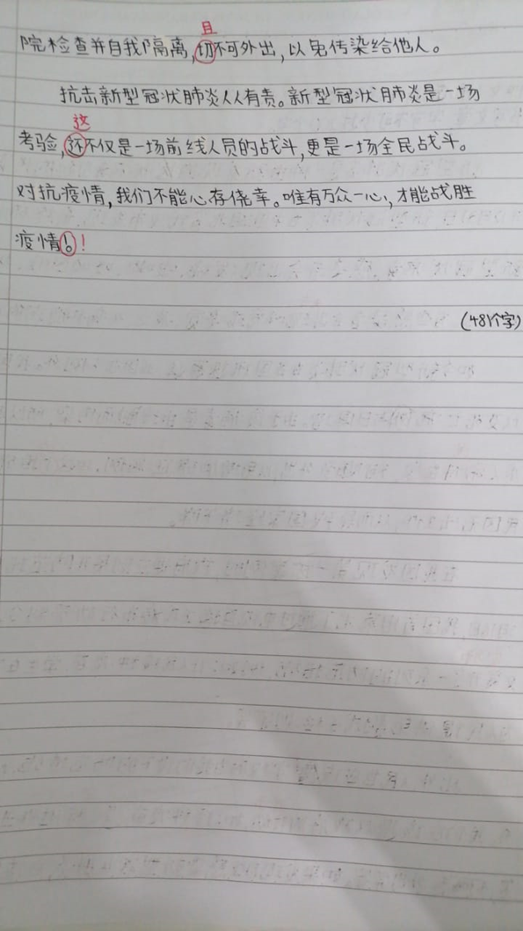 且
院检查并自我隔离,切不可外出,以免传染给他人。
抗击新型冠状肺炎人人有责。新型冠状肺炎是一场
这
考验,还不仅是一场前线人员的战斗,更是一场全民战斗。
对抗疫情,我们不能心存侥幸。唯有万众一心,才能战胜
疫情!。!
(481个字)